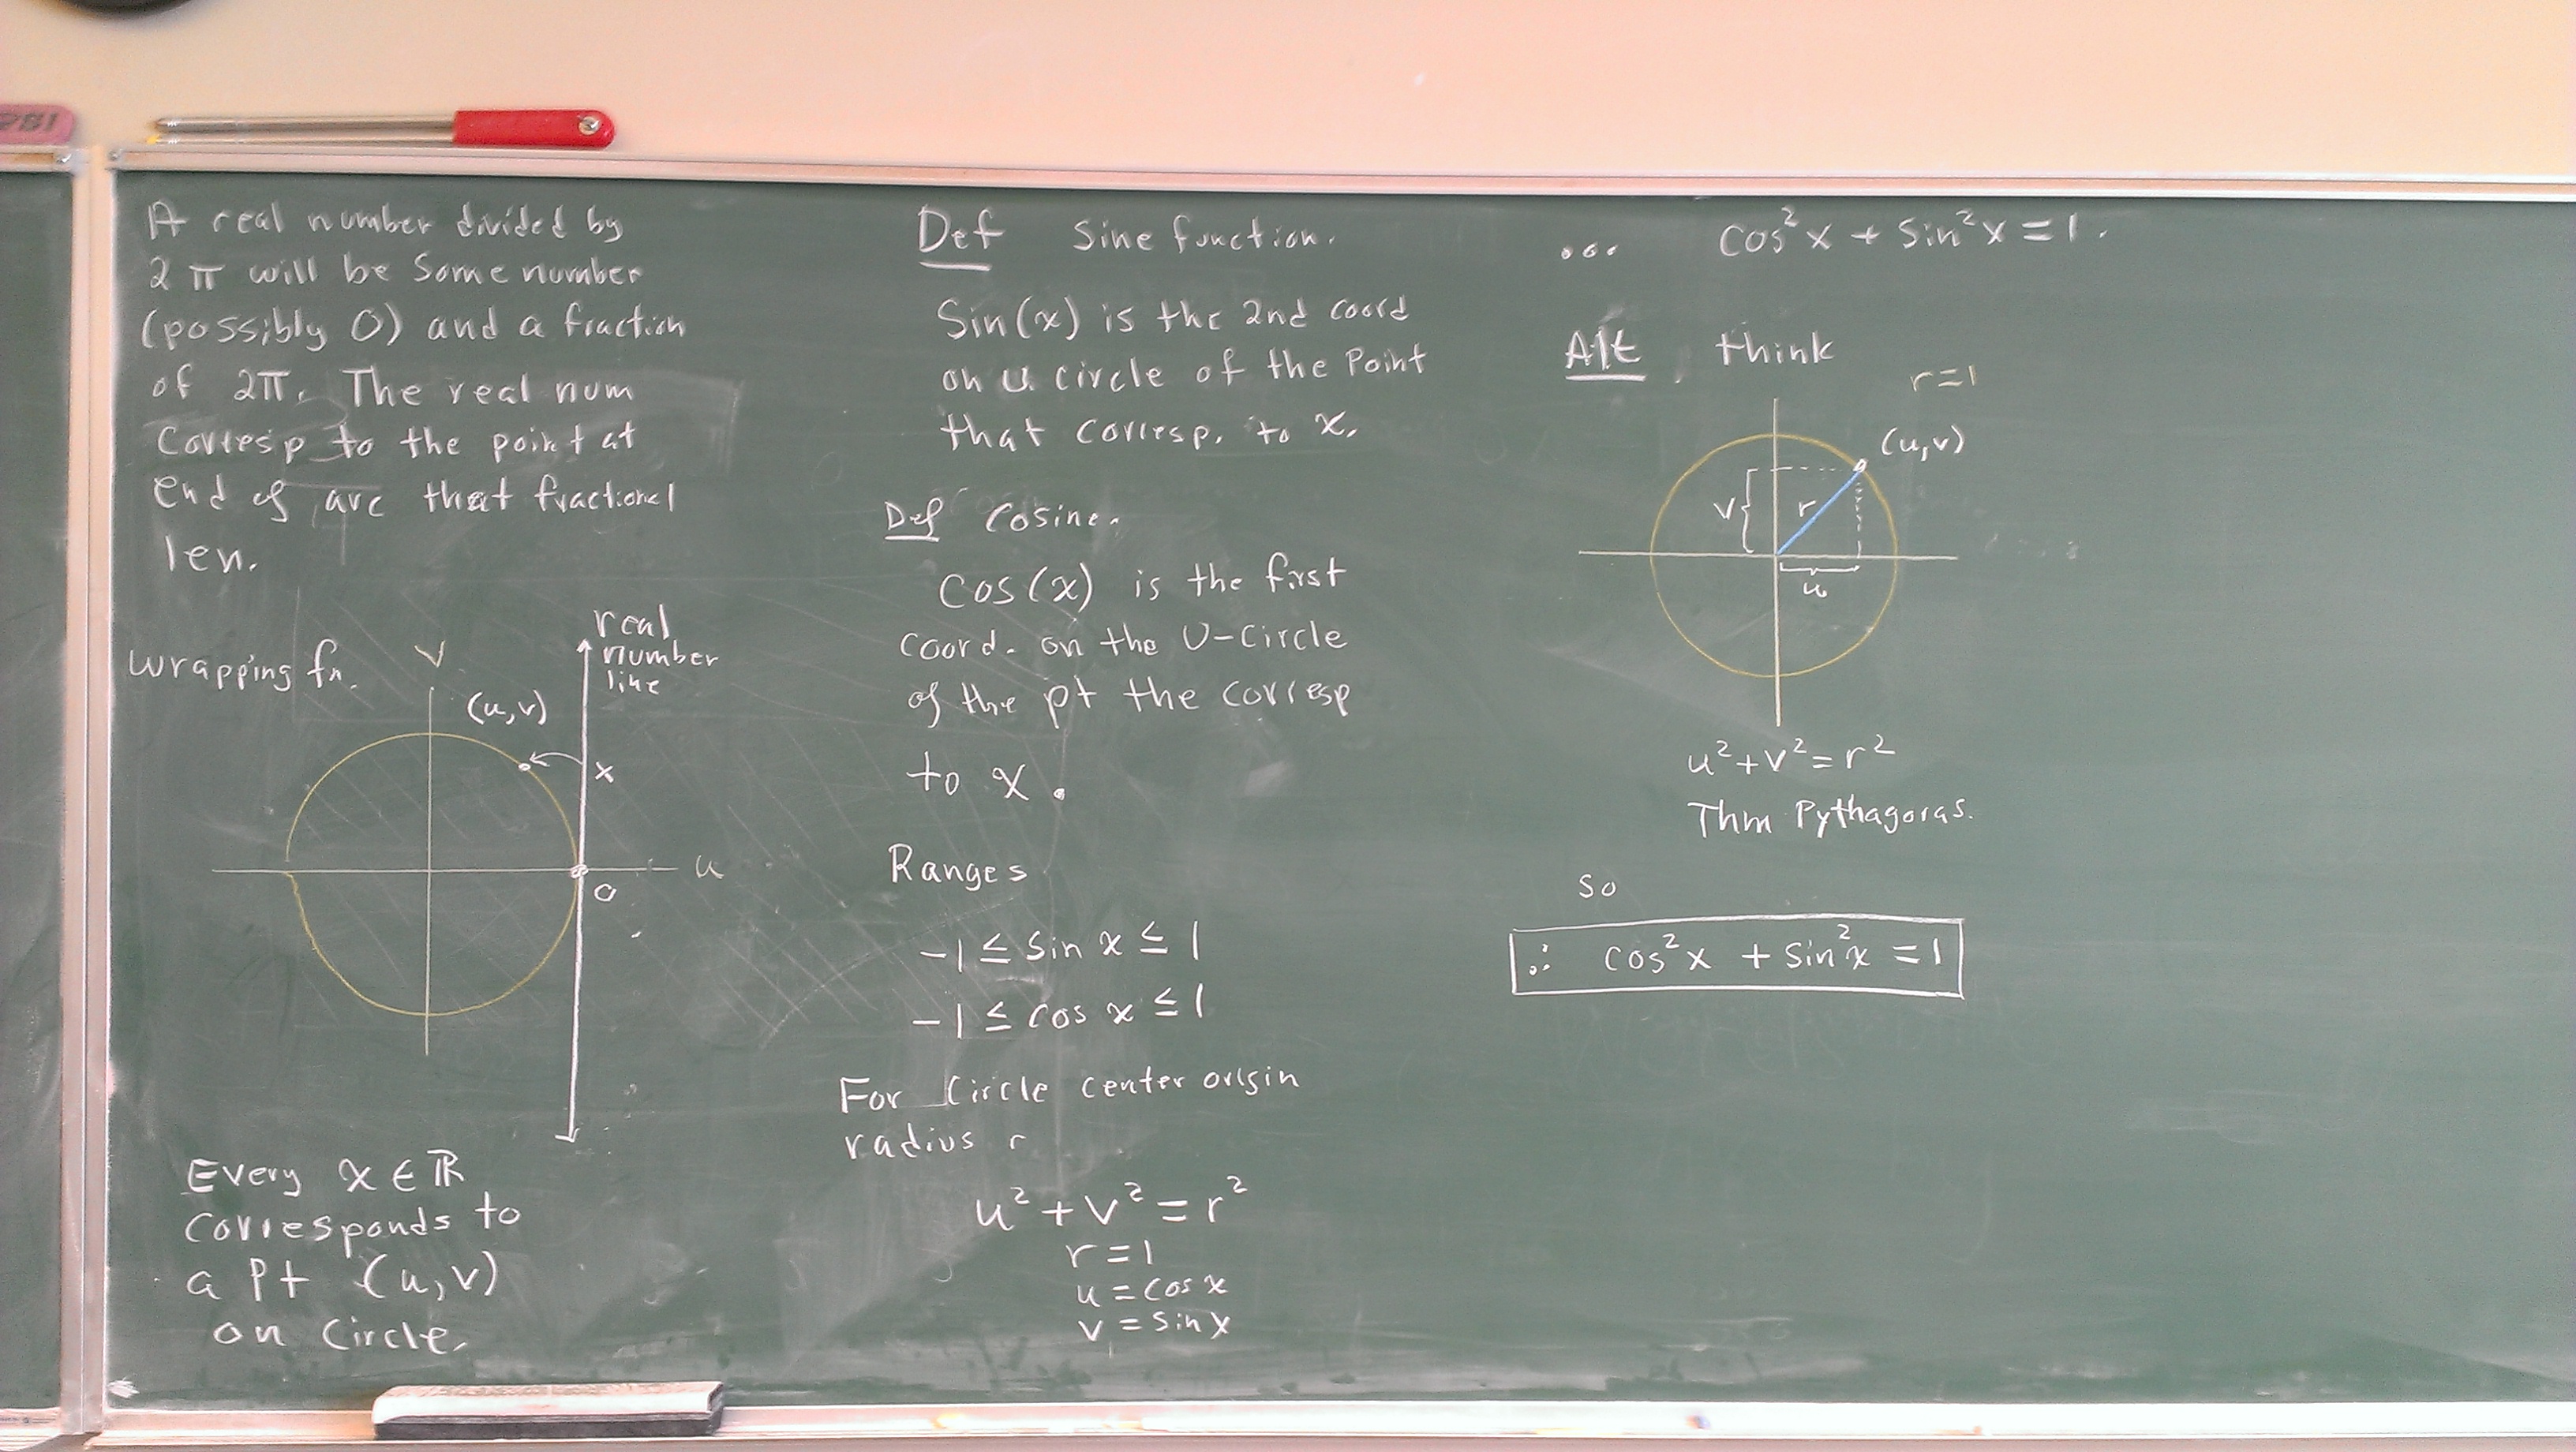 A real number divided by
2π will be some number
(possibly 0) and a fraction
of 2π. The real num
corresp to the point at
end of arc that fractional
len.
wrapping fn.
V
(u,v)
real
number
line
x
u
0
Every x ∈ ℝ
corresponds to
a pt (u,v)
on circle.
Def Sine function.
Sin(x) is the 2nd coord
on u. circle of the Point
that corresp. to x.
Def Cosine.
Cos(x) is the first
coord. on the U-Circle
of the pt the corresp
to x.
Ranges
-1 ≤ sin x ≤ 1
-1 ≤ cos x ≤ 1
For Circle center origin
radius r
u² + v² = r²
r = 1
u = cos x
v = sin x
... cos²x + sin²x = 1.
Alt, think
r=1
(u,v)
V
r
u
u²+v²=r²
Thm Pythagoras.
so
∴ cos²x + sin²x = 1